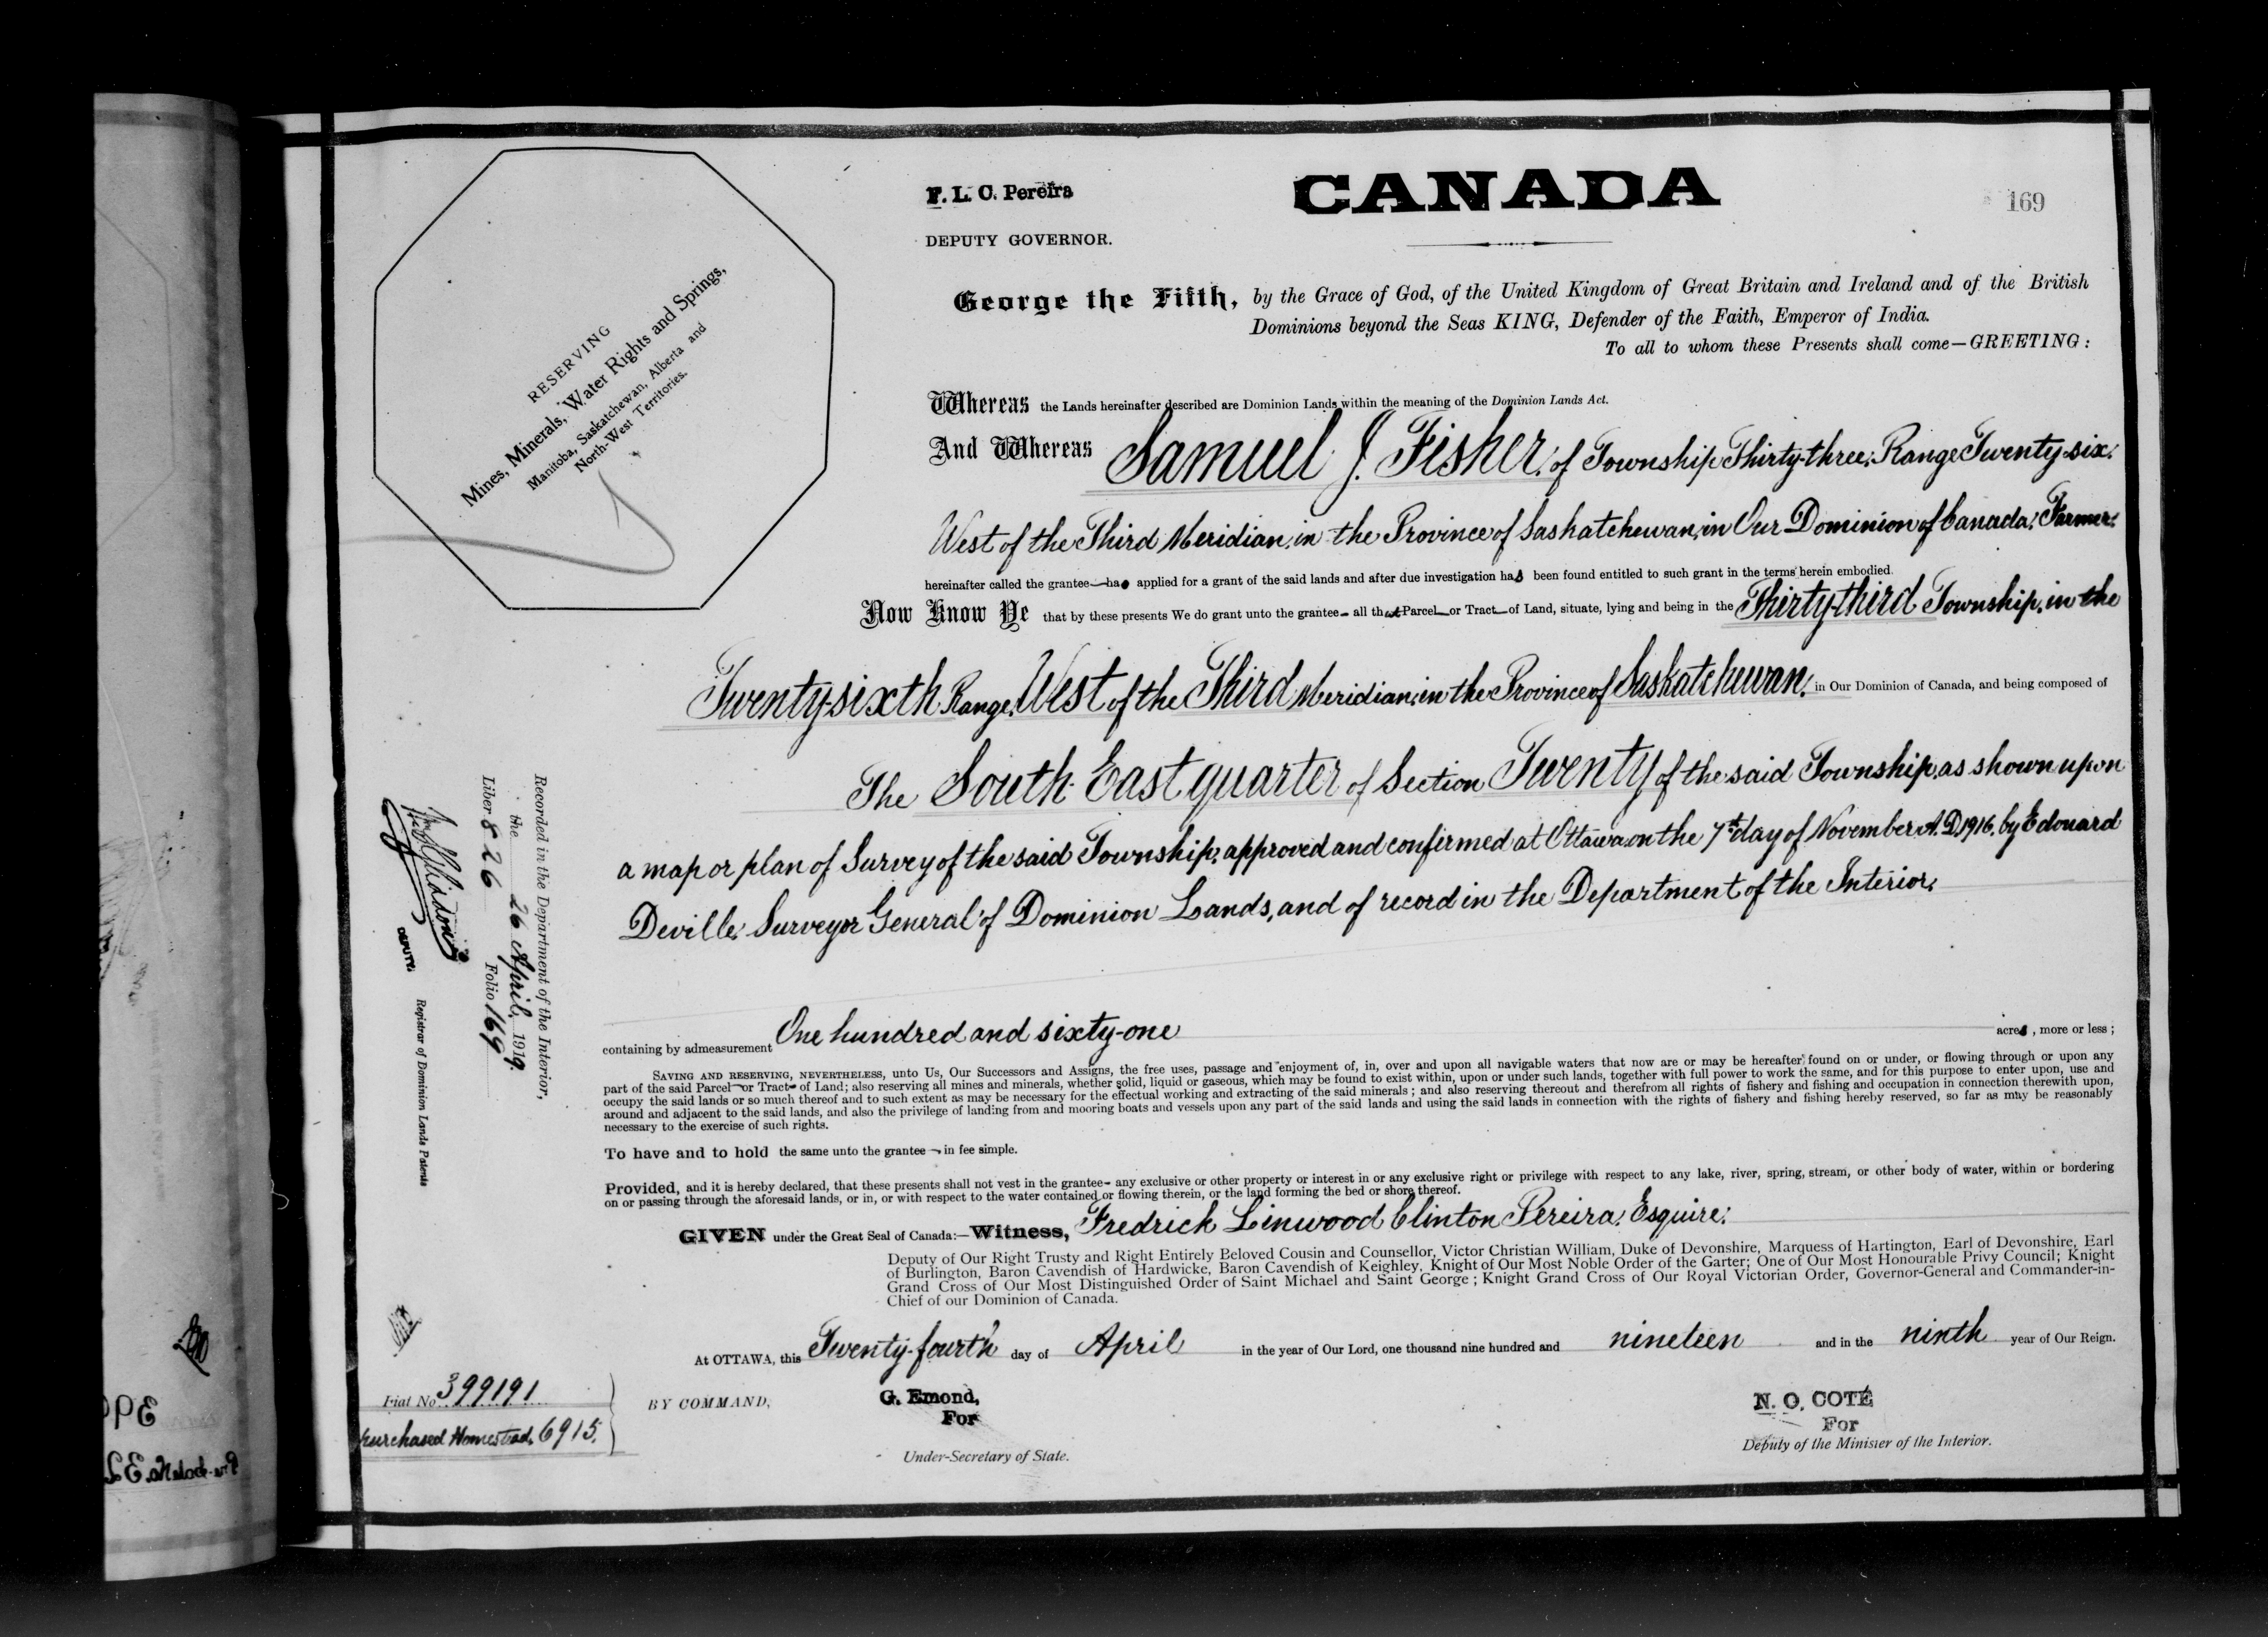 F. L. C. Pereira
DEPUTY GOVERNOR.
CANADA
169
RESERVING
Mines, Minerals, Water Rights and Springs,
Manitoba, Saskatchewan, Alberta and
North-West Territories.
George the Fifth, by the Grace of God, of the United Kingdom of Great Britain and Ireland and of the British
Dominions beyond the Seas KING, Defender of the Faith, Emperor of India.
To all to whom these Presents shall come—GREETING:
Whereas the Lands hereinafter described are Dominion Lands within the meaning of the Dominion Lands Act.
And Whereas Samuel J. Fisher, of Township Thirty-three, Range Twenty-six,
West of the Third Meridian, in the Province of Saskatchewan, in Our Dominion of Canada, Farmer,
hereinafter called the grantee—has applied for a grant of the said lands and after due investigation has been found entitled to such grant in the terms herein embodied.
Now Know Ye that by these presents We do grant unto the grantee— all that Parcel—or Tract—of Land, situate, lying and being in the Thirty-third Township, in the
Twenty-sixth Range, West of the Third Meridian, in the Province of Saskatchewan, in Our Dominion of Canada, and being composed of
The South East quarter of Section Twenty of the said Township, as shown upon
a map or plan of Survey of the said Township, approved and confirmed at Ottawa on the 7th day of November A.D. 1916, by Edouard
Deville, Surveyor General of Dominion Lands, and of record in the Department of the Interior,
containing by admeasurement One hundred and sixty-one acres, more or less;
SAVING AND RESERVING, NEVERTHELESS, unto Us, Our Successors and Assigns, the free uses, passage and enjoyment of, in, over and upon all navigable waters that now are or may be hereafter found on or under, or flowing through or upon any
part of the said Parcel—or Tract—of Land; also reserving all mines and minerals, whether solid, liquid or gaseous, which may be found to exist within, upon or under such lands, together with full power to work the same, and for this purpose to enter upon, use and
occupy the said lands or so much thereof and to such extent as may be necessary for the effectual working and extracting of the said minerals; and also reserving thereout and therefrom all rights of fishery and fishing and occupation in connection therewith upon,
around and adjacent to the said lands, and also the privilege of landing from and mooring boats and vessels upon any part of the said lands and using the said lands in connection with the rights of fishery and fishing hereby reserved, so far as may be reasonably
necessary to the exercise of such rights.
To have and to hold the same unto the grantee— in fee simple.
Provided, and it is hereby declared, that these presents shall not vest in the grantee— any exclusive or other property or interest in or any exclusive right or privilege with respect to any lake, river, spring, stream, or other body of water, within or bordering
on or passing through the aforesaid lands, or in, or with respect to the water contained or flowing therein, or the land forming the bed or shore thereof.
GIVEN under the Great Seal of Canada:—Witness, Fredrick Linwood Clinton Pereira, Esquire,
Deputy of Our Right Trusty and Right Entirely Beloved Cousin and Counsellor, Victor Christian William, Duke of Devonshire, Marquess of Hartington, Earl of Devonshire, Earl
of Burlington, Baron Cavendish of Hardwicke, Baron Cavendish of Keighley, Knight of Our Most Noble Order of the Garter; One of Our Most Honourable Privy Council; Knight
Grand Cross of Our Most Distinguished Order of Saint Michael and Saint George; Knight Grand Cross of Our Royal Victorian Order, Governor-General and Commander-in-
Chief of our Dominion of Canada.
At OTTAWA, this Twenty-fourth day of April in the year of Our Lord, one thousand nine hundred and nineteen and in the ninth year of Our Reign.
BY COMMAND,
G. Emond,
For
Under-Secretary of State.
N. O. COTÉ
For
Deputy of the Minister of the Interior.
Recorded in the Department of the Interior,
the 26 April, 1919.
Liber 826 Folio 169
DEPUTY.
Registrar of Dominion Lands Patents
Fiat No. 399191
Purchased Homestead, 6915.